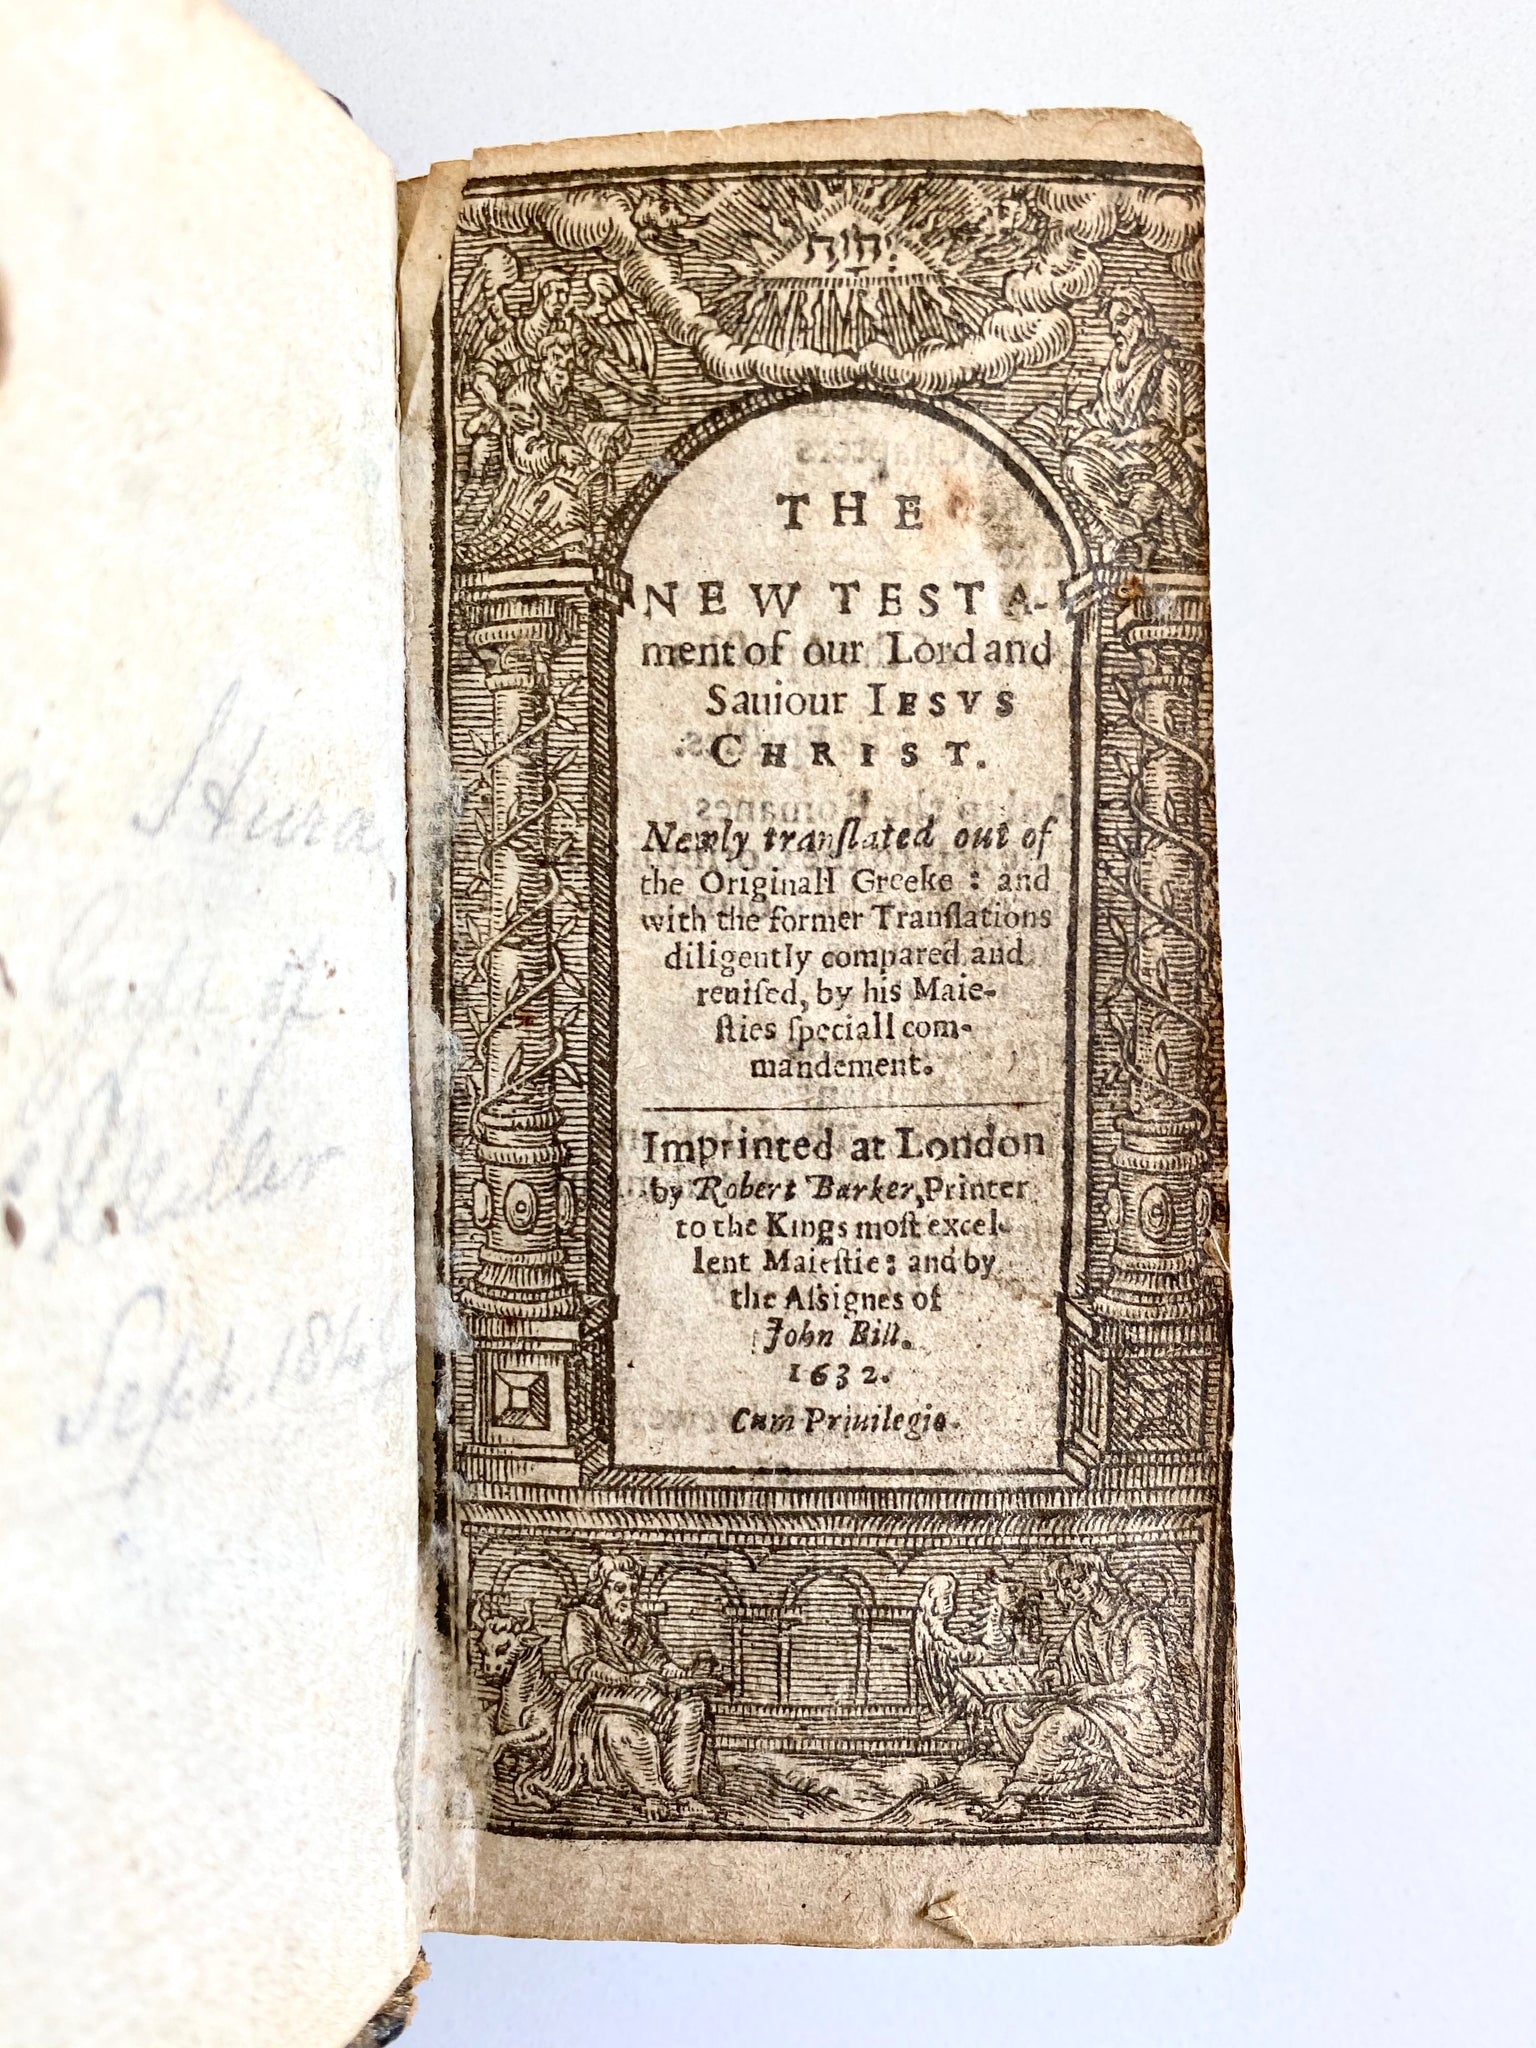 Gift of
Sept. 184
יהוה
THE
NEW TESTA-
ment of our Lord and
Sauiour IESVS
CHRIST.
Newly tranſlated out of
the Originall Greeke : and
with the former Tranſlations
diligently compared and
reuiſed, by his Maie-
ſties ſpeciall com-
mandement.
Imprinted at London
by Robert Barker, Printer
to the Kings moſt excel-
lent Maieſtie: and by
the Aſsignes of
John Bill.
1632.
Cum Priuilegio.